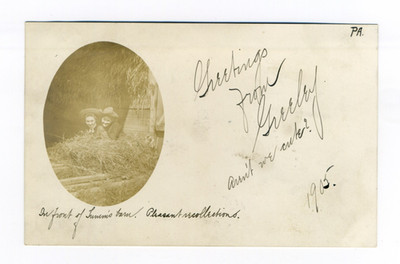 PA.
Greetings
From
Greeley
aren't we cute?
1905.
In front of barn. Pleasant recollections.